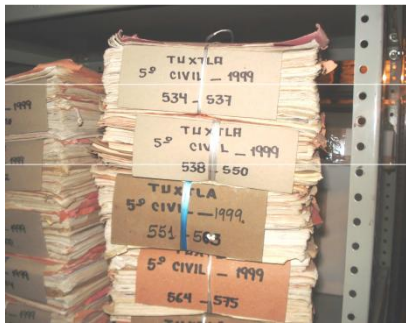 TUXTLA
5º CIVIL - 1999
534 - 537
TUXTLA
5º CIVIL - 1999
538 - 550
TUXTLA
5º CIVIL - 1999.
551 - 563
5º CIVIL - 1999
564 - 575
TUXTLA
1999
1999